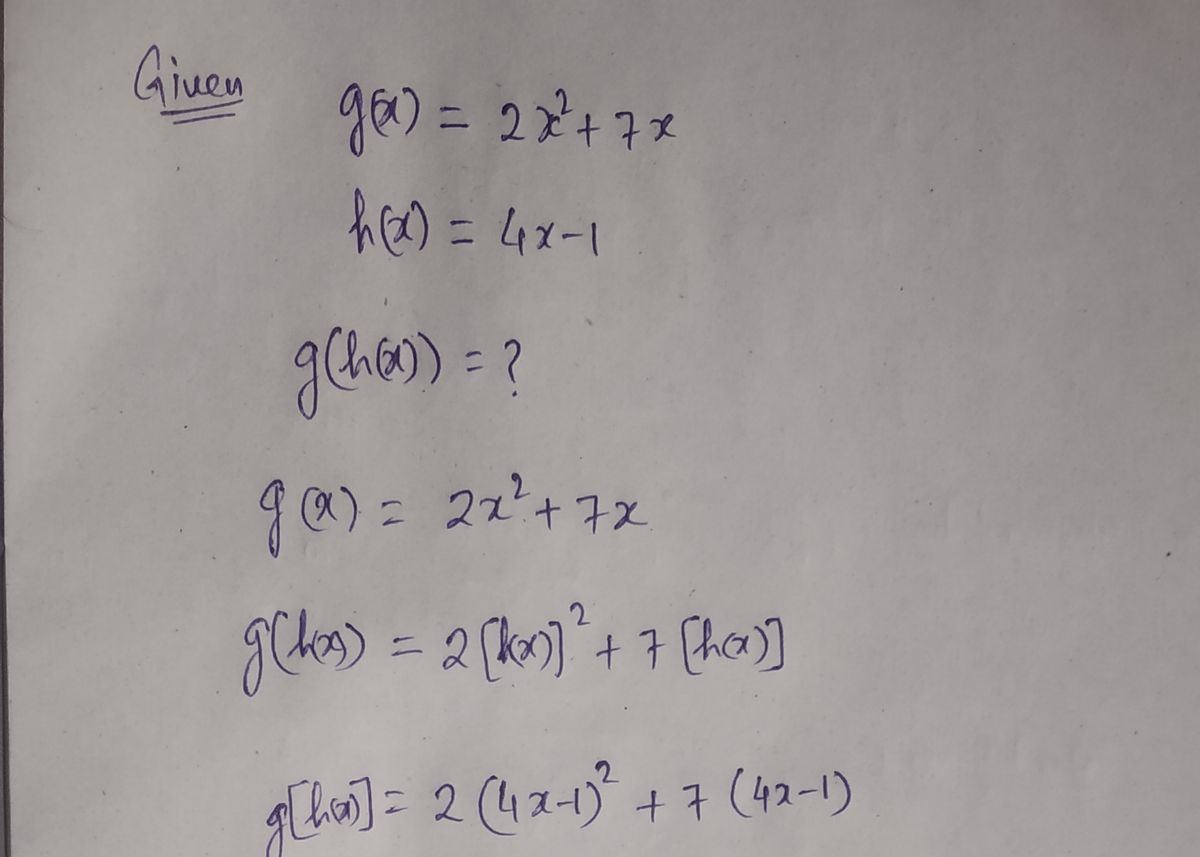 Given
g(x) = 2x² + 7x
h(x) = 4x-1
g(h(x)) = ?
g(x) = 2x² + 7x
g(h(x)) = 2[h(x)]² + 7[h(x)]
g[h(x)] = 2(4x-1)² + 7(4x-1)